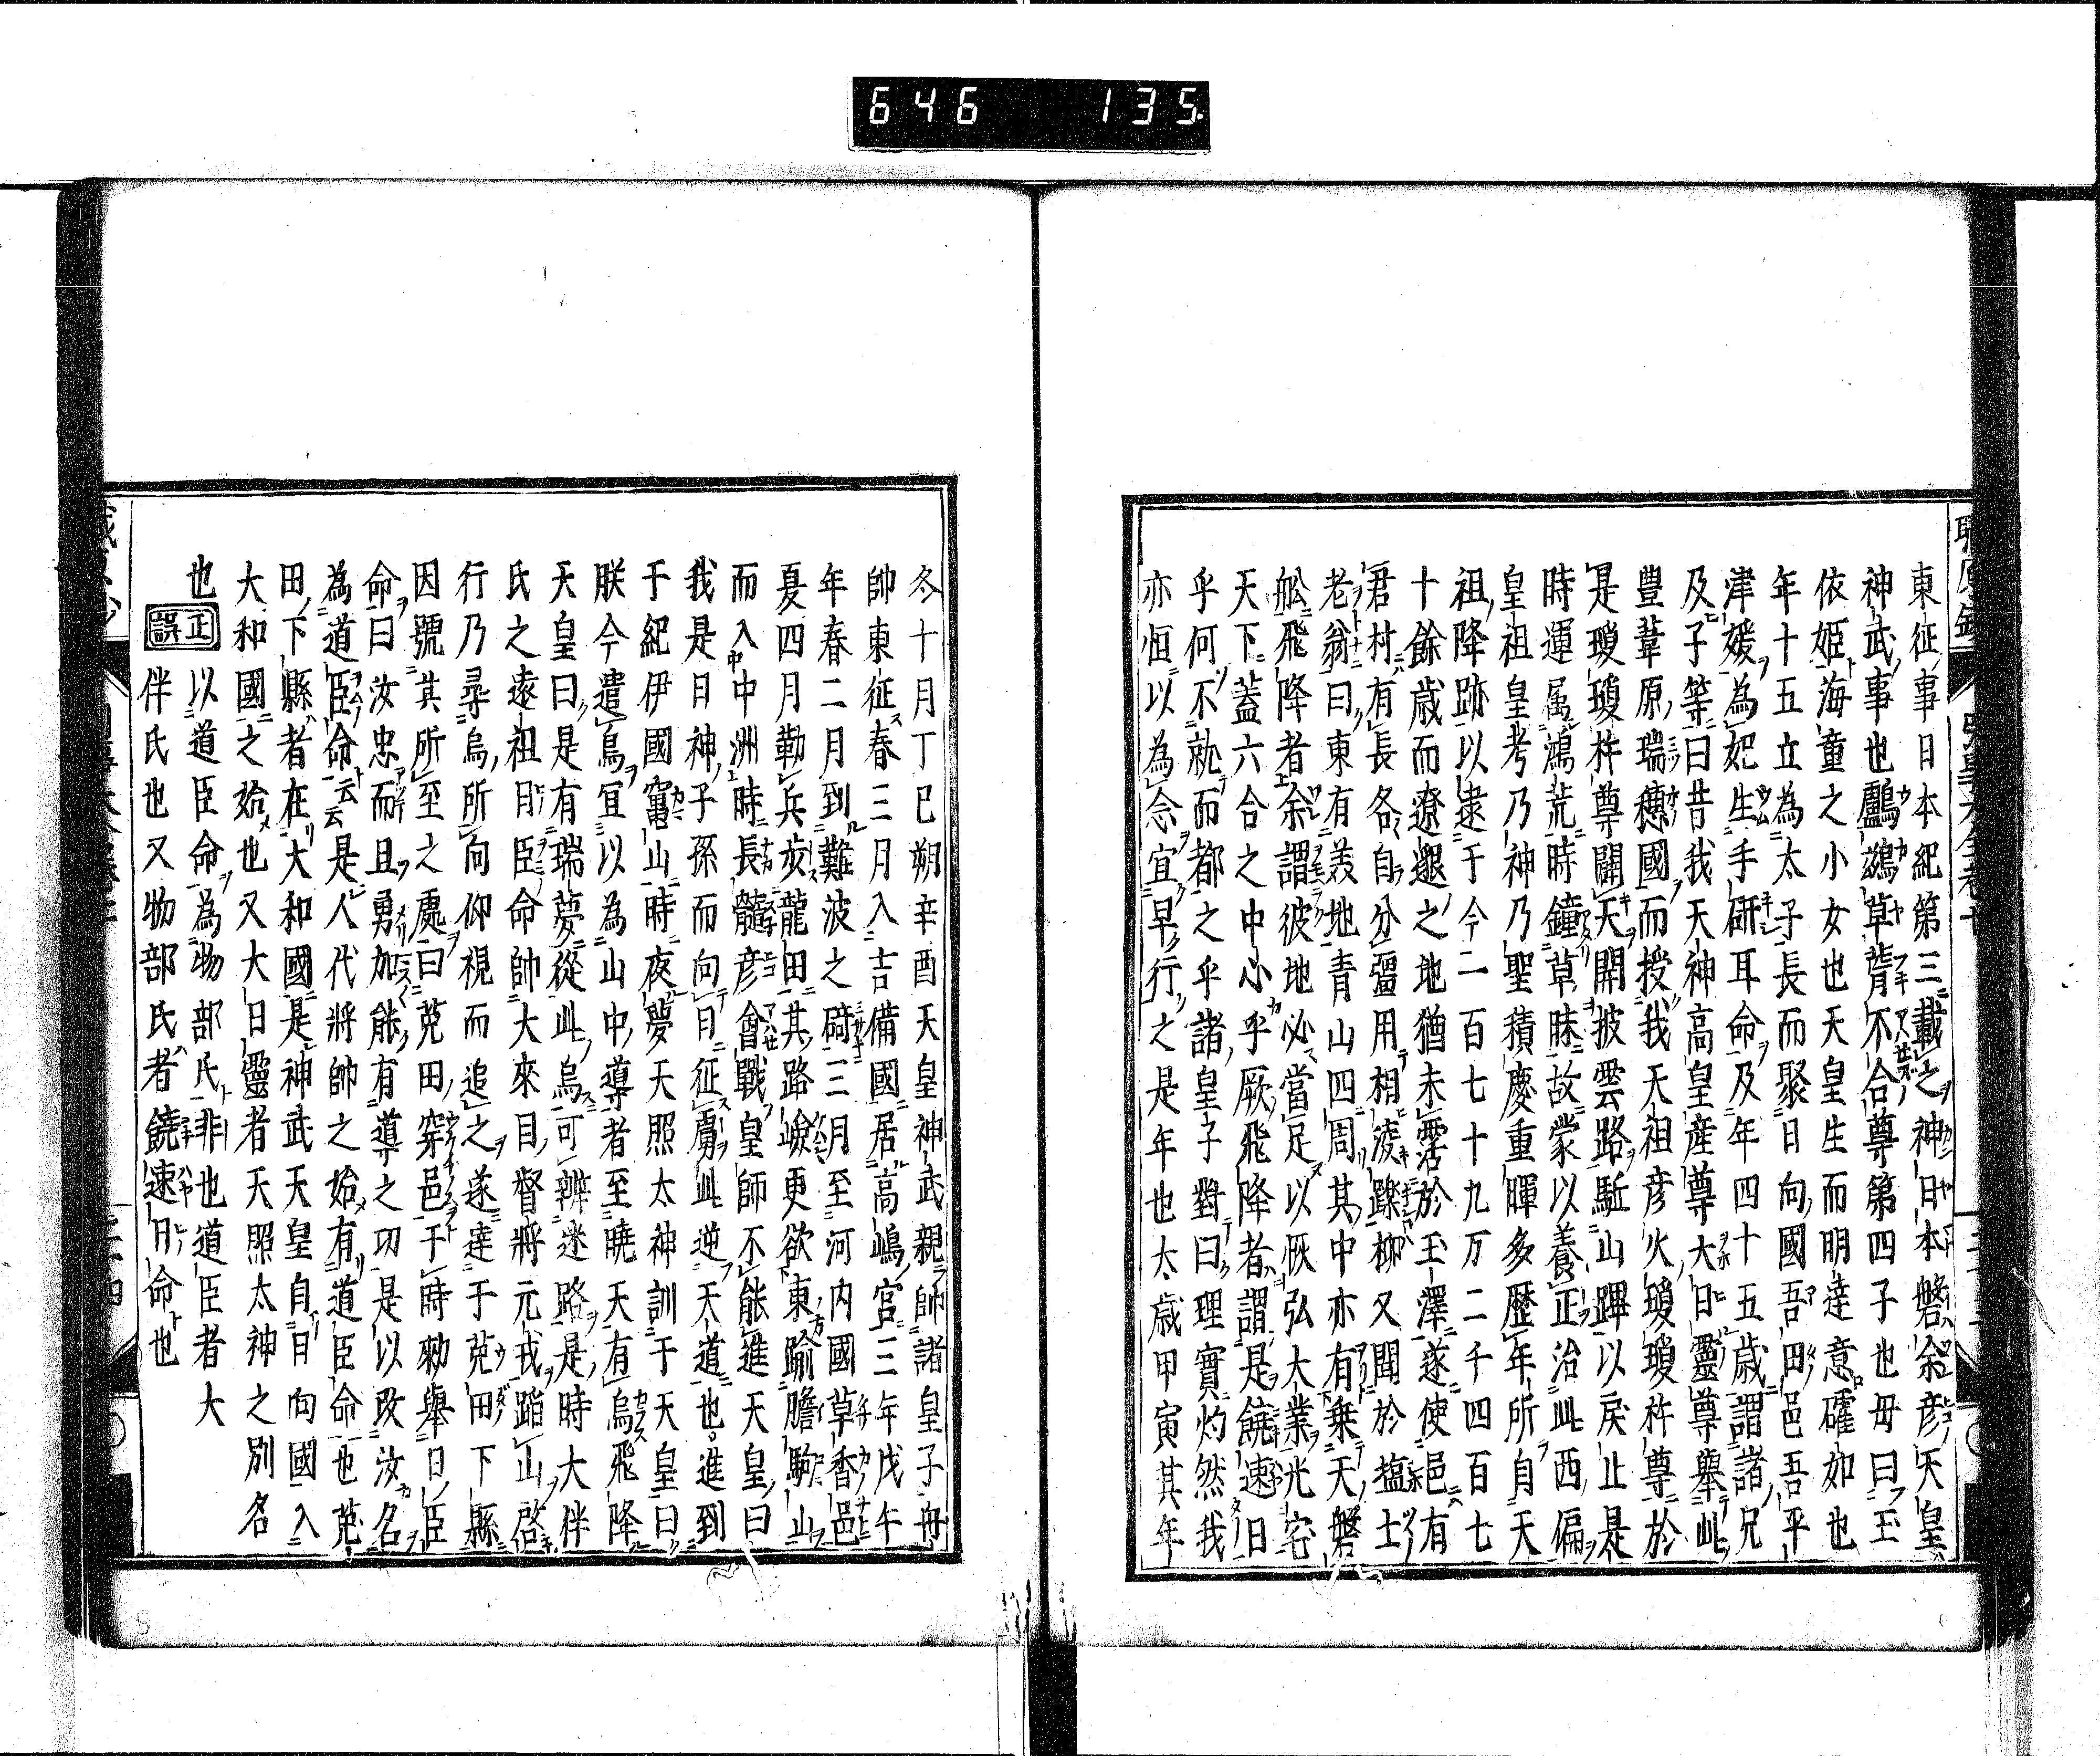 646 135
東征事日本紀第三載之神日本磐余彦天皇
神武事也鸕鷀草葺不合尊第四子也母曰玉
依姫海童之小女也天皇生而明達意礭如也
年十五立為太子長而聚日向國吾田邑吾平
津媛為妃生手研耳命及年四十五歳謂諸兄
及子等曰昔我天神高皇産尊大日靈尊舉此
豊葦原瑞穗國而授我天祖彦火瓊瓊杵尊於
是瓊瓊杵尊闢天開披雲路駈山蹕以戾止是
時運属鴻荒時鐘草昧故蒙以養正治此西偏
皇祖皇考乃神乃聖積慶重暉多歴年所自天
祖降跡以逮于今一百七十九万二千四百七
十餘歳而遼邈之地猶未霑於玉澤遂使邑有
君村有長各自分疆用相淩躒抑又聞於塩土
老翁曰東有美地青山四周其中亦有乗天磐
舩飛降者余謂彼地必當足以恢弘大業光宅
天下蓋六合之中心乎厥飛降者謂是饒速日
乎何不就而都之乎諸皇子對曰理實灼然我
亦恒以為念宜早行之是年也太歳甲寅其年
冬十月丁巳朔辛酉天皇神武親帥諸皇子舟
帥東征春三月入吉備國居高嶋宮三年戊午
年春二月到難波之碕三月至河内國草香邑
夏四月勒兵歩龍田其路嶮更欲東踰膽駒山
而入中洲時長髄彦會戰皇師不能進天皇曰
我是日神子孫而向日征虜此逆天道也進到
于紀伊國竃山時夜夢天照太神訓于天皇曰
朕今遣烏宜以為山中導者至曉天有烏飛降
天皇曰是有瑞夢從此烏可辨迷路是時大伴
氏之遠祖日臣命帥大來目督將元戎蹈山啓
行乃尋烏所向仰視而追之遂達于菟田下縣
因號其所至之處曰菟田穿邑于時勑舉日臣
命曰汝忠而且勇加能有導之功是以改汝名
為道臣命云云是人代將帥之始有道臣命也菟
田下縣者在大和國是神武天皇自日向國入
大和國之始也又大日靈者天照太神之別名
也
正誤 以道臣命為物部氏非也道臣者大
伴氏也又物部氏者饒速日命也